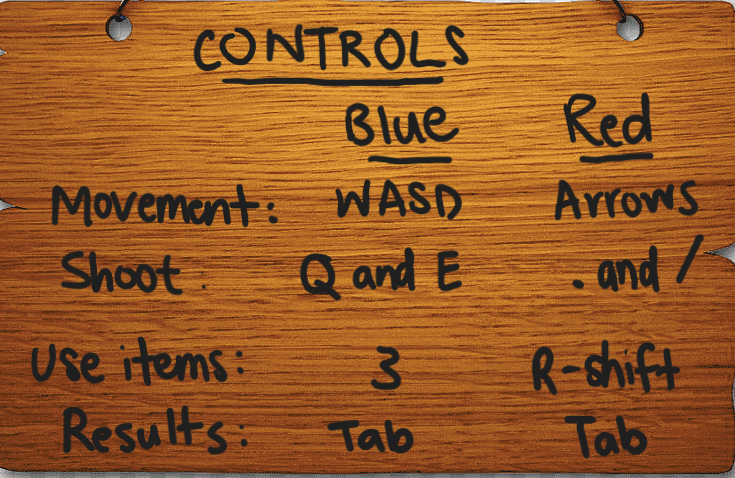 CONTROLS
Blue Red
Movement: WASD Arrows
Shoot: Q and E . and /
Use items: 3 R-shift
Results: Tab Tab